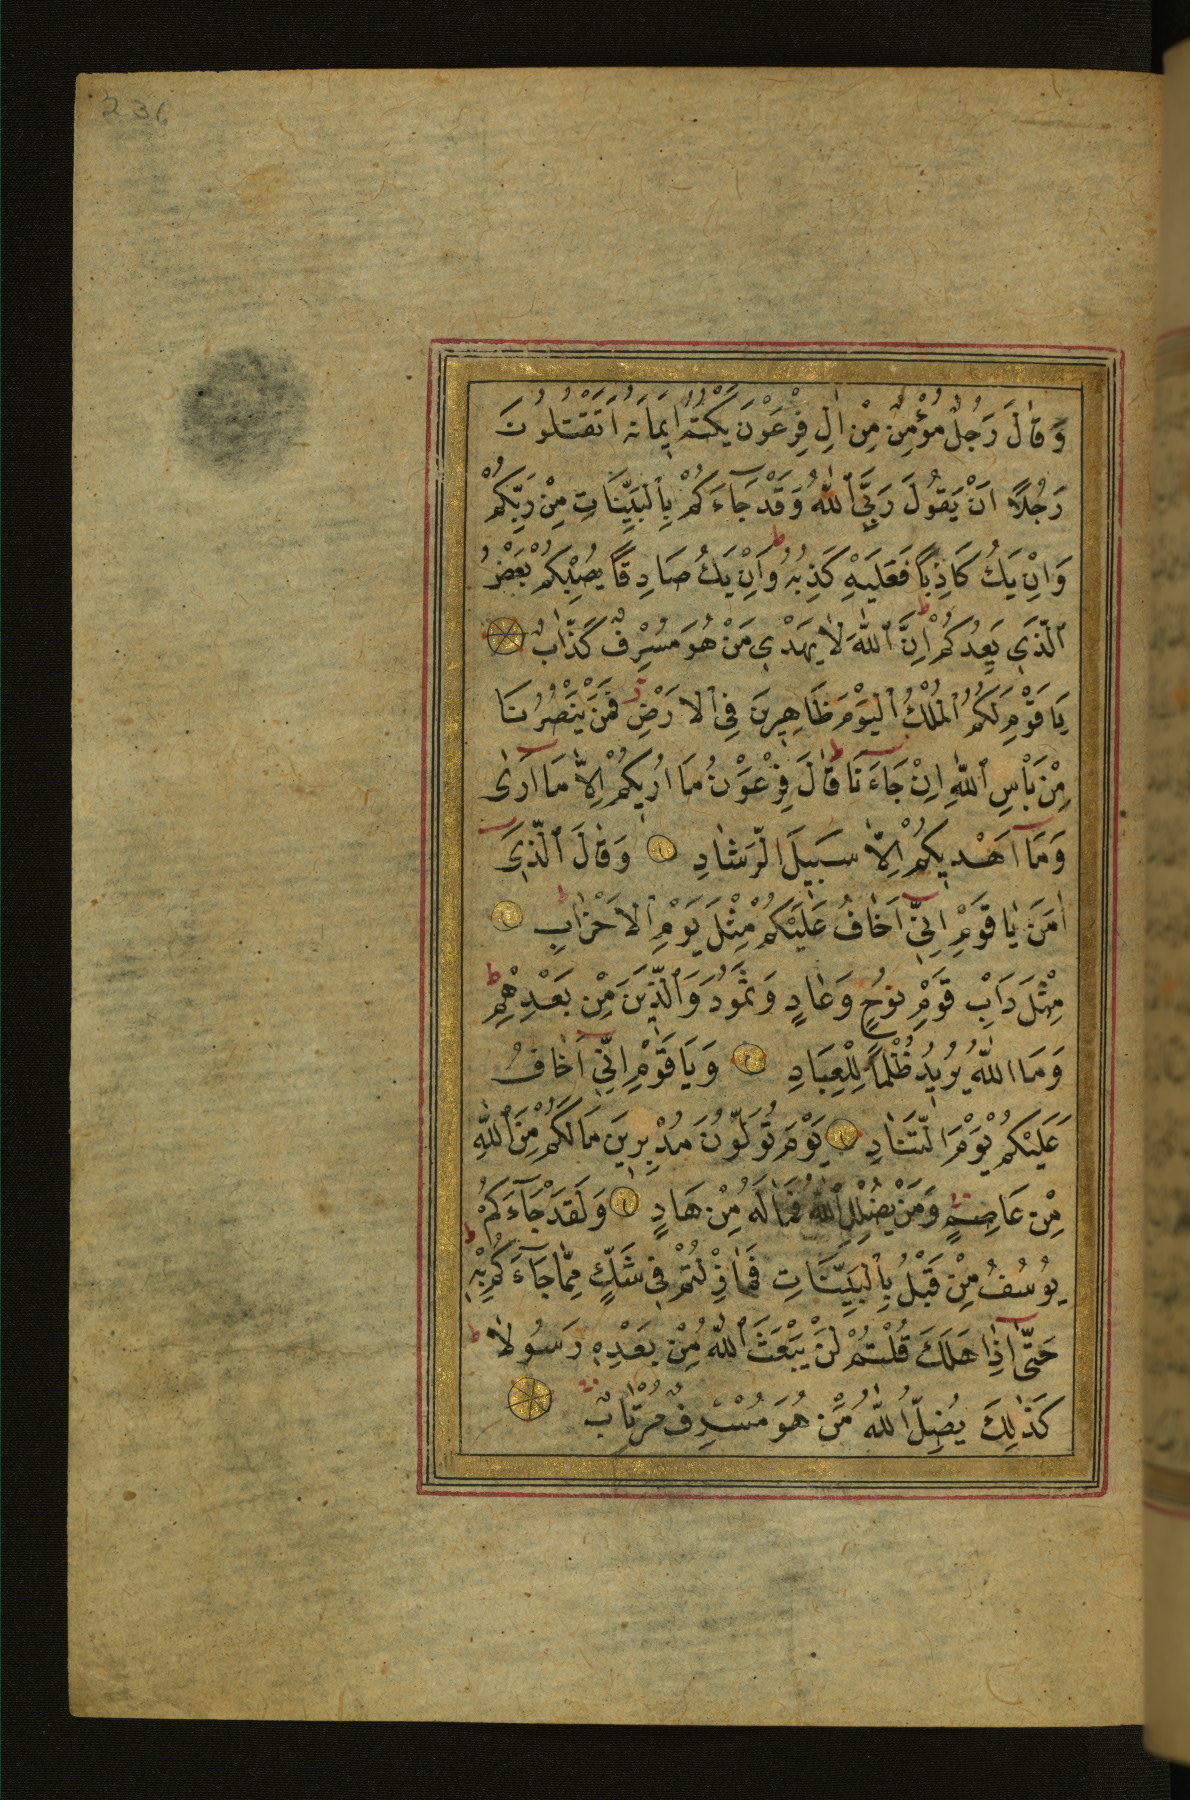 236
وَقَالَ رَجُلٌ مُؤْمِنٌ مِنْ اٰلِ فِرْعَوْنَ يَكْتُمُ اِيمَانَهُ اَتَقْتُلُونَ
رَجُلًا اَنْ يَقُولَ رَبِّيَ ٱللّٰهُ وَقَدْ جَآءَكُمْ بِٱلْبَيِّنَاتِ مِنْ رَبِّكُمْ
وَاِنْ يَكُ كَاذِبًا فَعَلَيْهِ كَذِبُهُ وَاِنْ يَكُ صَادِقًا يُصِبْكُمْ بَعْضُ
ٱلَّذِي يَعِدُكُمْ اِنَّ ٱللّٰهَ لَا يَهْدِي مَنْ هُوَ مُسْرِفٌ كَذَّابٌ
يَا قَوْمِ لَكُمُ ٱلْمُلْكُ ٱلْيَوْمَ ظَاهِرِينَ فِي ٱلْاَرْضِ فَمَنْ يَنْصُرُنَا
مِنْ بَاْسِ ٱللّٰهِ اِنْ جَآءَنَا قَالَ فِرْعَوْنُ مَا اُرِيكُمْ اِلَّا مَا اَرٰى
وَمَآ اَهْدِيكُمْ اِلَّا سَبِيلَ الرَّشَادِ وَقَالَ ٱلَّذِيٓ
اٰمَنَ يَا قَوْمِ اِنِّيٓ اَخَافُ عَلَيْكُمْ مِثْلَ يَوْمِ ٱلْاَحْزَابِ
مِثْلَ دَاْبِ قَوْمِ نُوحٍ وَعَادٍ وَثَمُودَ وَٱلَّذِينَ مِنْ بَعْدِهِمْ
وَمَا اللّٰهُ يُرِيدُ ظُلْمًا لِلْعِبَادِ وَيَا قَوْمِ اِنِّيٓ اَخَافُ
عَلَيْكُمْ يَوْمَ التَّنَادِ يَوْمَ تُوَلُّونَ مُدْبِرِينَ مَا لَكُمْ مِنَ ٱللّٰهِ
مِنْ عَاصِمٍ وَمَنْ يُضْلِلِ ٱللّٰهُ فَمَا لَهُ مِنْ هَادٍ وَلَقَدْ جَآءَكُمْ
يُوسُفُ مِنْ قَبْلُ بِٱلْبَيِّنَاتِ فَمَا زِلْتُمْ فِي شَكٍّ مِمَّا جَآءَكُمْ بِهِ
حَتّٰىٓ اِذَا هَلَكَ قُلْتُمْ لَنْ يَبْعَثَ ٱللّٰهُ مِنْ بَعْدِهِ رَسُولًا
كَذٰلِكَ يُضِلُّ اللّٰهُ مَنْ هُوَ مُسْرِفٌ مُرْتَابٌ